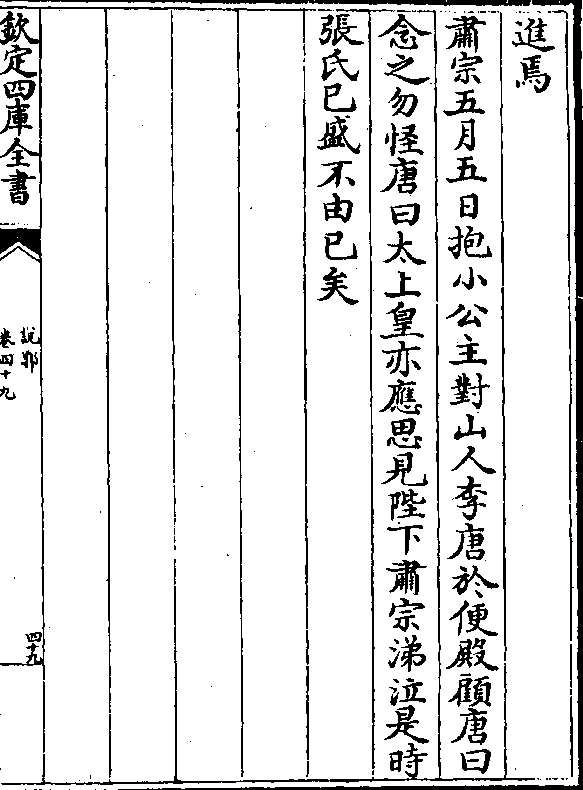 進焉
肅宗五月五日抱小公主對山人李唐於便殿顧唐曰
念之勿怪唐曰太上皇亦應思見陛下肅宗涕泣是時
張氏已盛不由已矣
欽定四庫全書
說郛
卷四十九
四十九